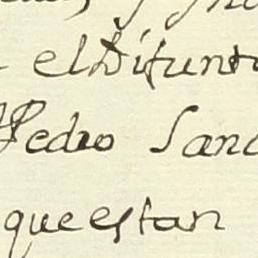 el Difunto
Pedro Sanc
que estan